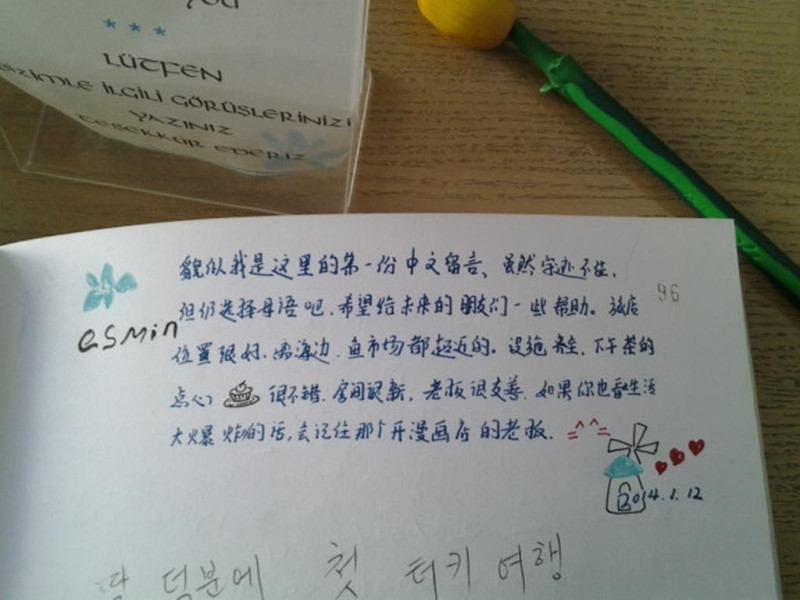 you
***
LÜTFEN
BİZİMLE İLGİLİ GÖRÜŞLERİNİZİ
YAZINIZ
TEŞEKKÜR EDERİZ
貌似我是这里的第一份中文留言、虽然字迹不佳,
96
但仍选择母语吧,希望给未来的朋友们一些帮助。旅店
esmin
位置很好,离海边、鱼市场都超近的。设施齐全,下午茶的
点心 很不错,房间很新,老板很友善,如果你也看生活
大火爆炸的话,会记住那个开漫画店的老板. =^^=
2014.1.12
덕분에 첫 터키 여행